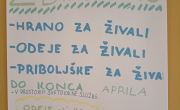 -HRANO ZA ŽIVALI
-ODEJE ZA ŽIVALI
-PRIBOLJŠKE ZA ŽIVA
DO KONCA APRILA